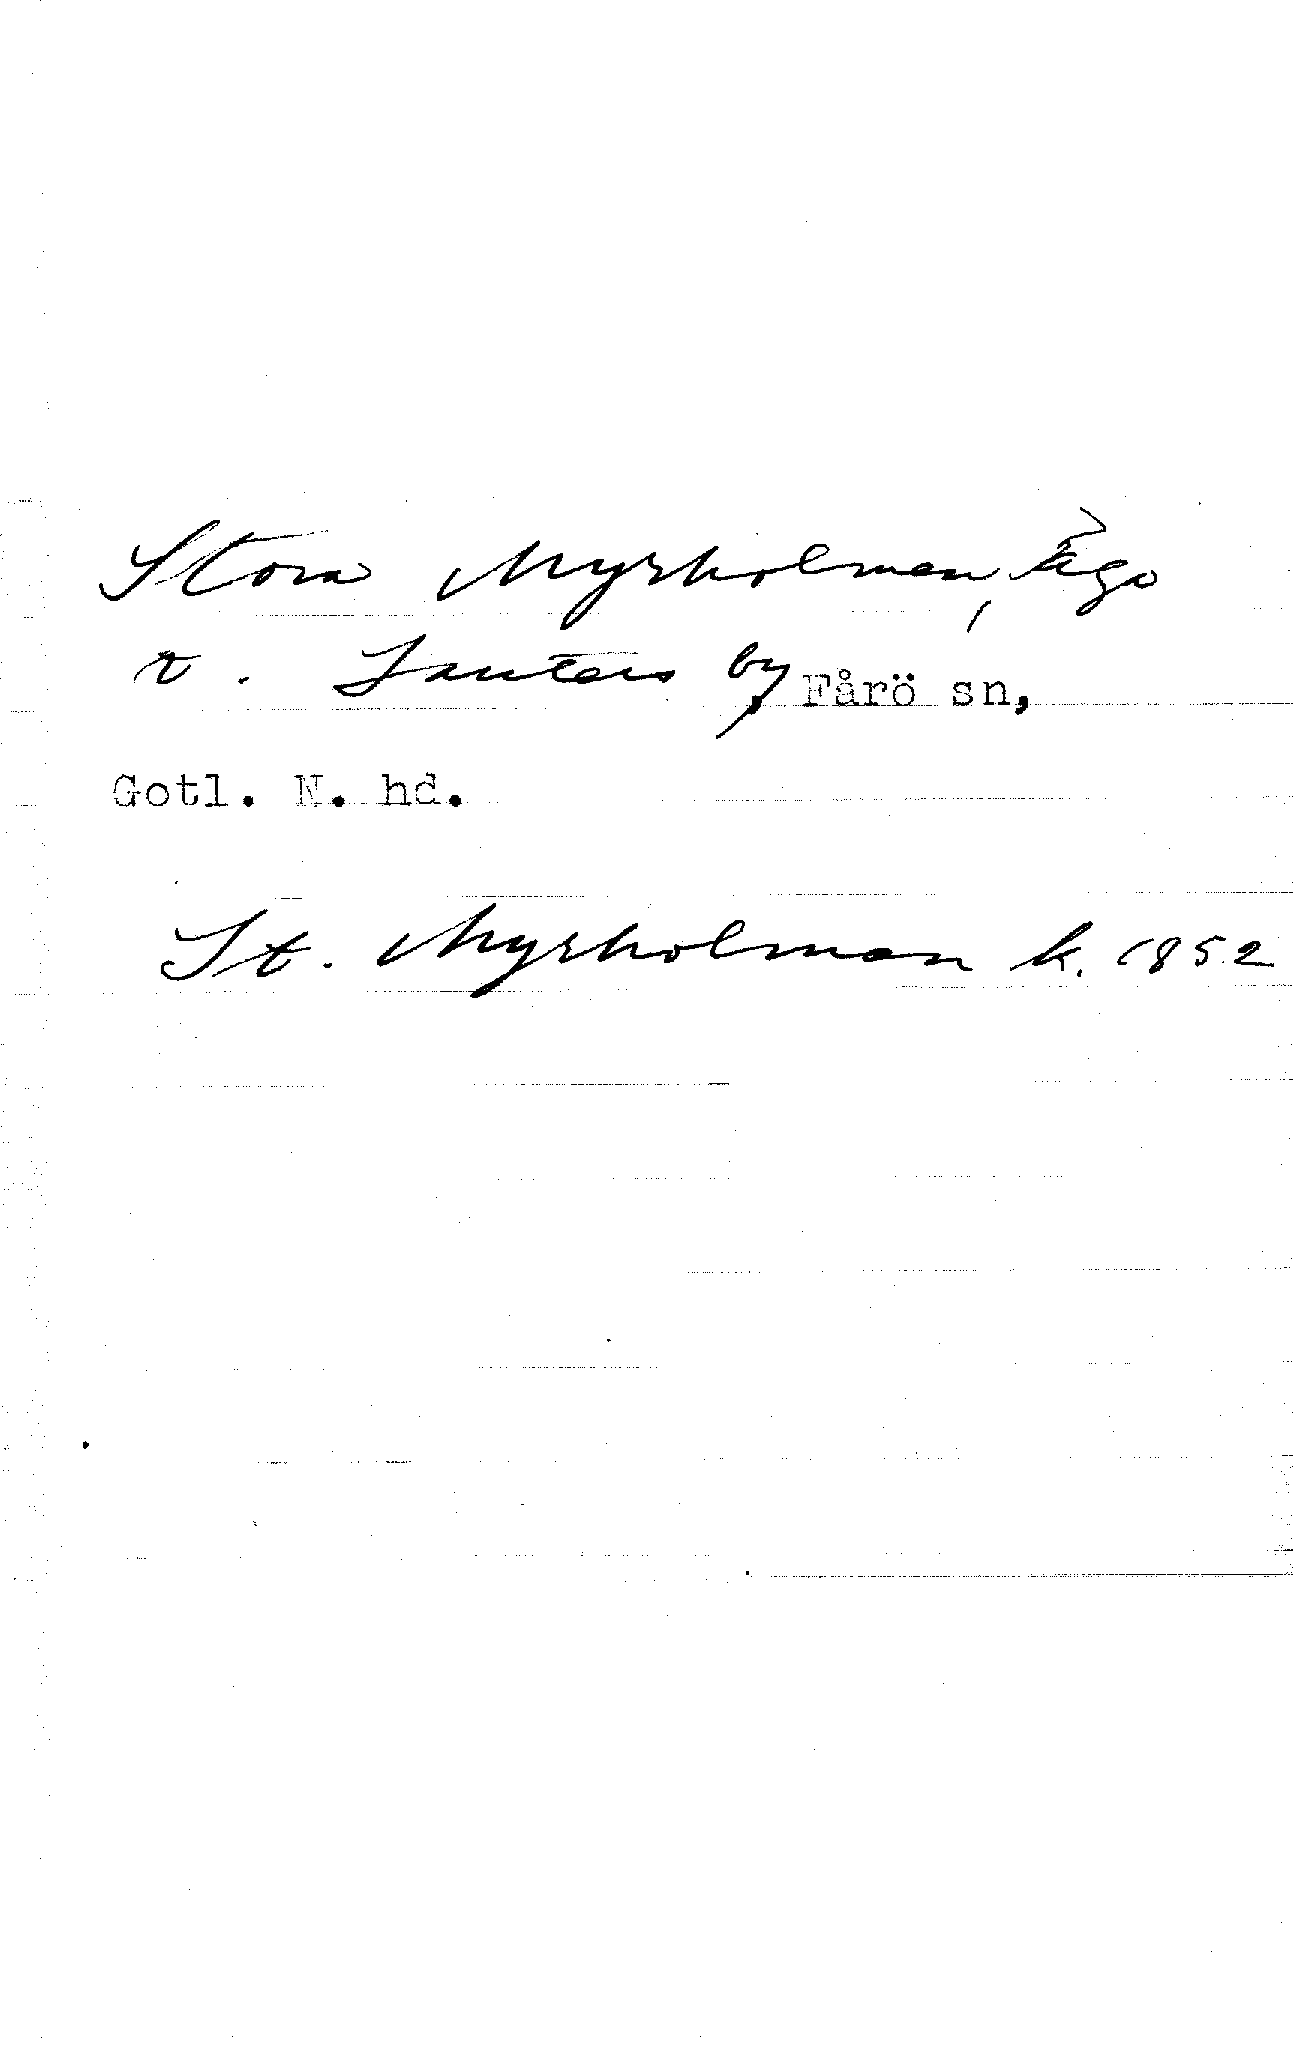 Stora Myrholmen, äga
t. Lauters by, Fårö sn,
Gotl. N. hd.
St. Myrholmen k. 1852